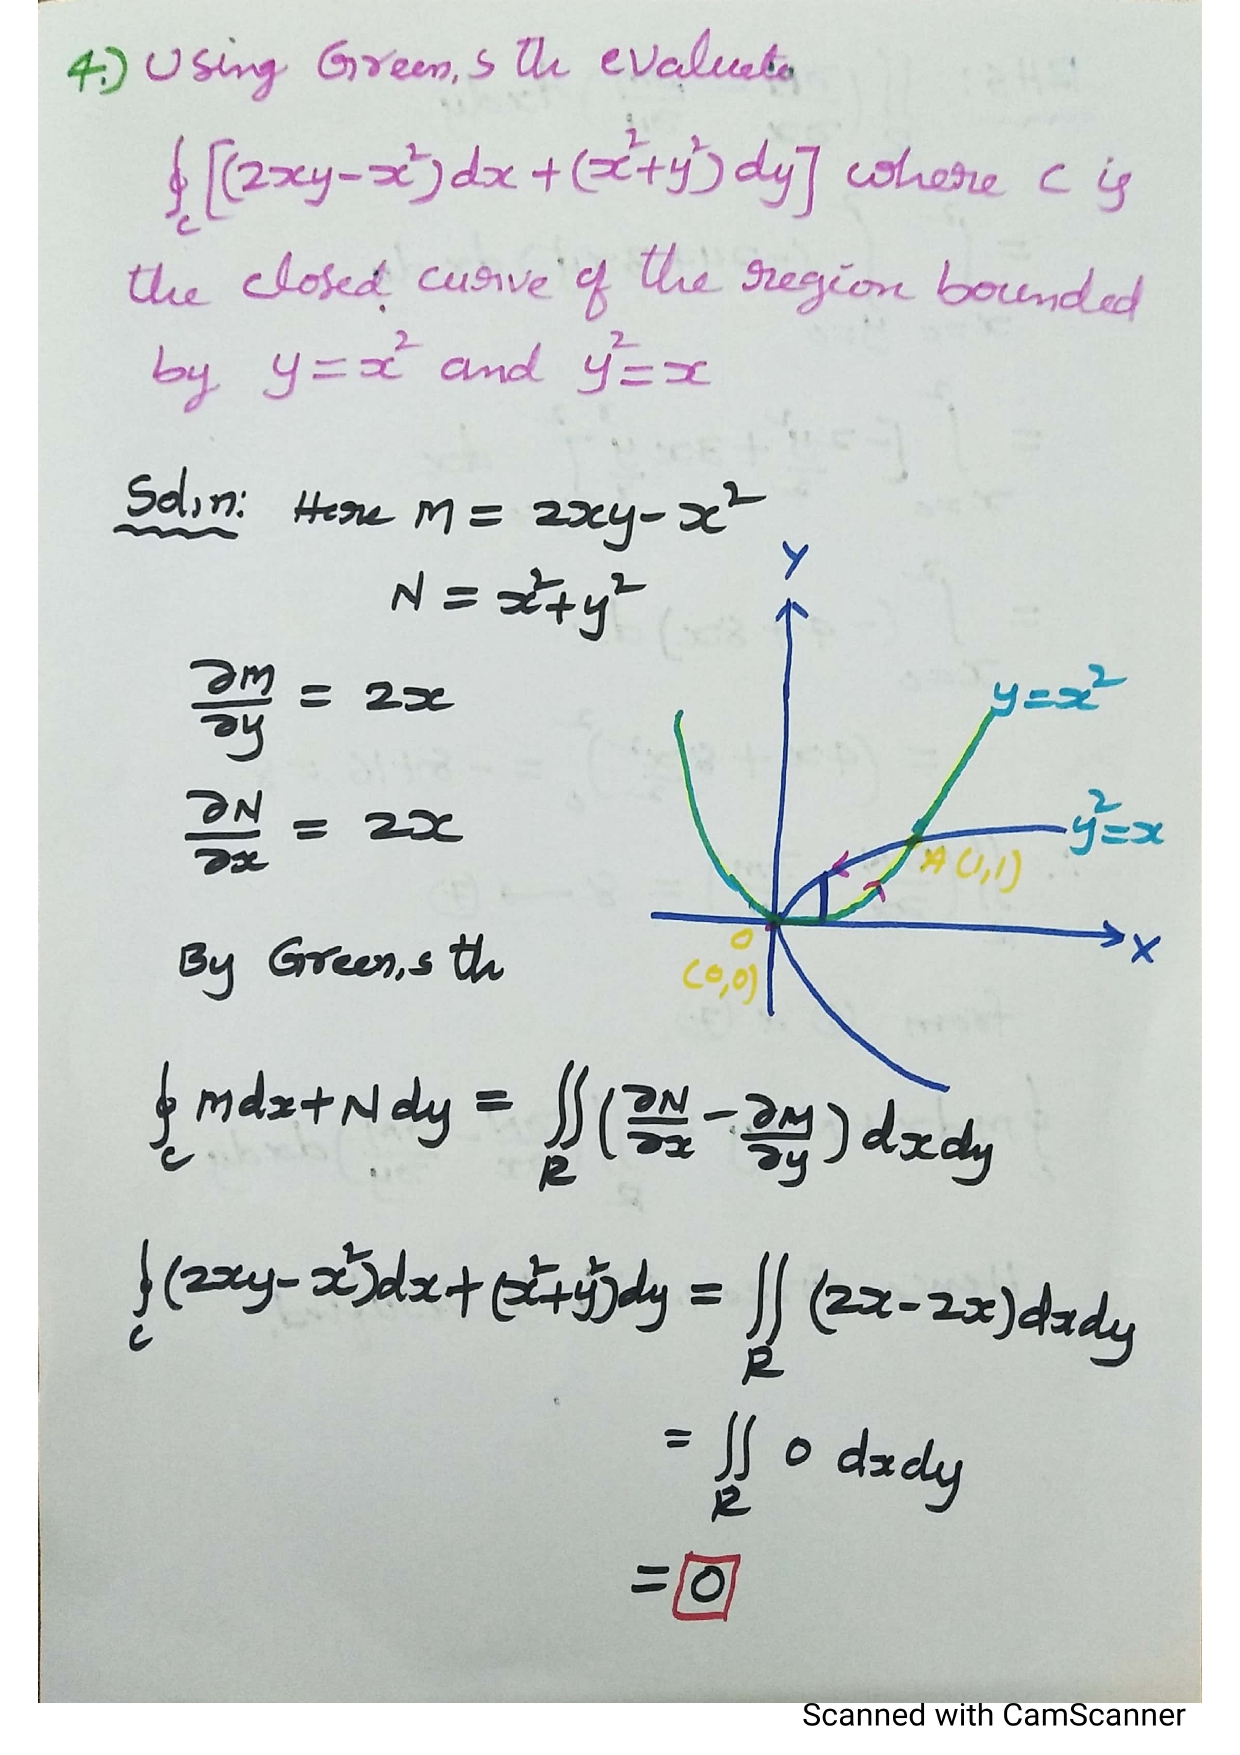 4.) Using Green,s th evaluate
∮_C [(2xy-x²)dx+(x²+y²)dy] where c is
the closed curve of the region bounded
by y=x² and y²=x
Soln: Here M = 2xy-x²
N = x²+y²
∂M/∂y = 2x
∂N/∂x = 2x
By Green,s th
Y
y=x²
y²=x
A(1,1)
O
(0,0)
X
∮_C Mdx+Ndy = ∬_R (∂N/∂x - ∂M/∂y) dxdy
∮_C (2xy-x²)dx+(x²+y²)dy = ∬_R (2x-2x)dxdy
= ∬_R 0 dxdy
= 0
Scanned with CamScanner